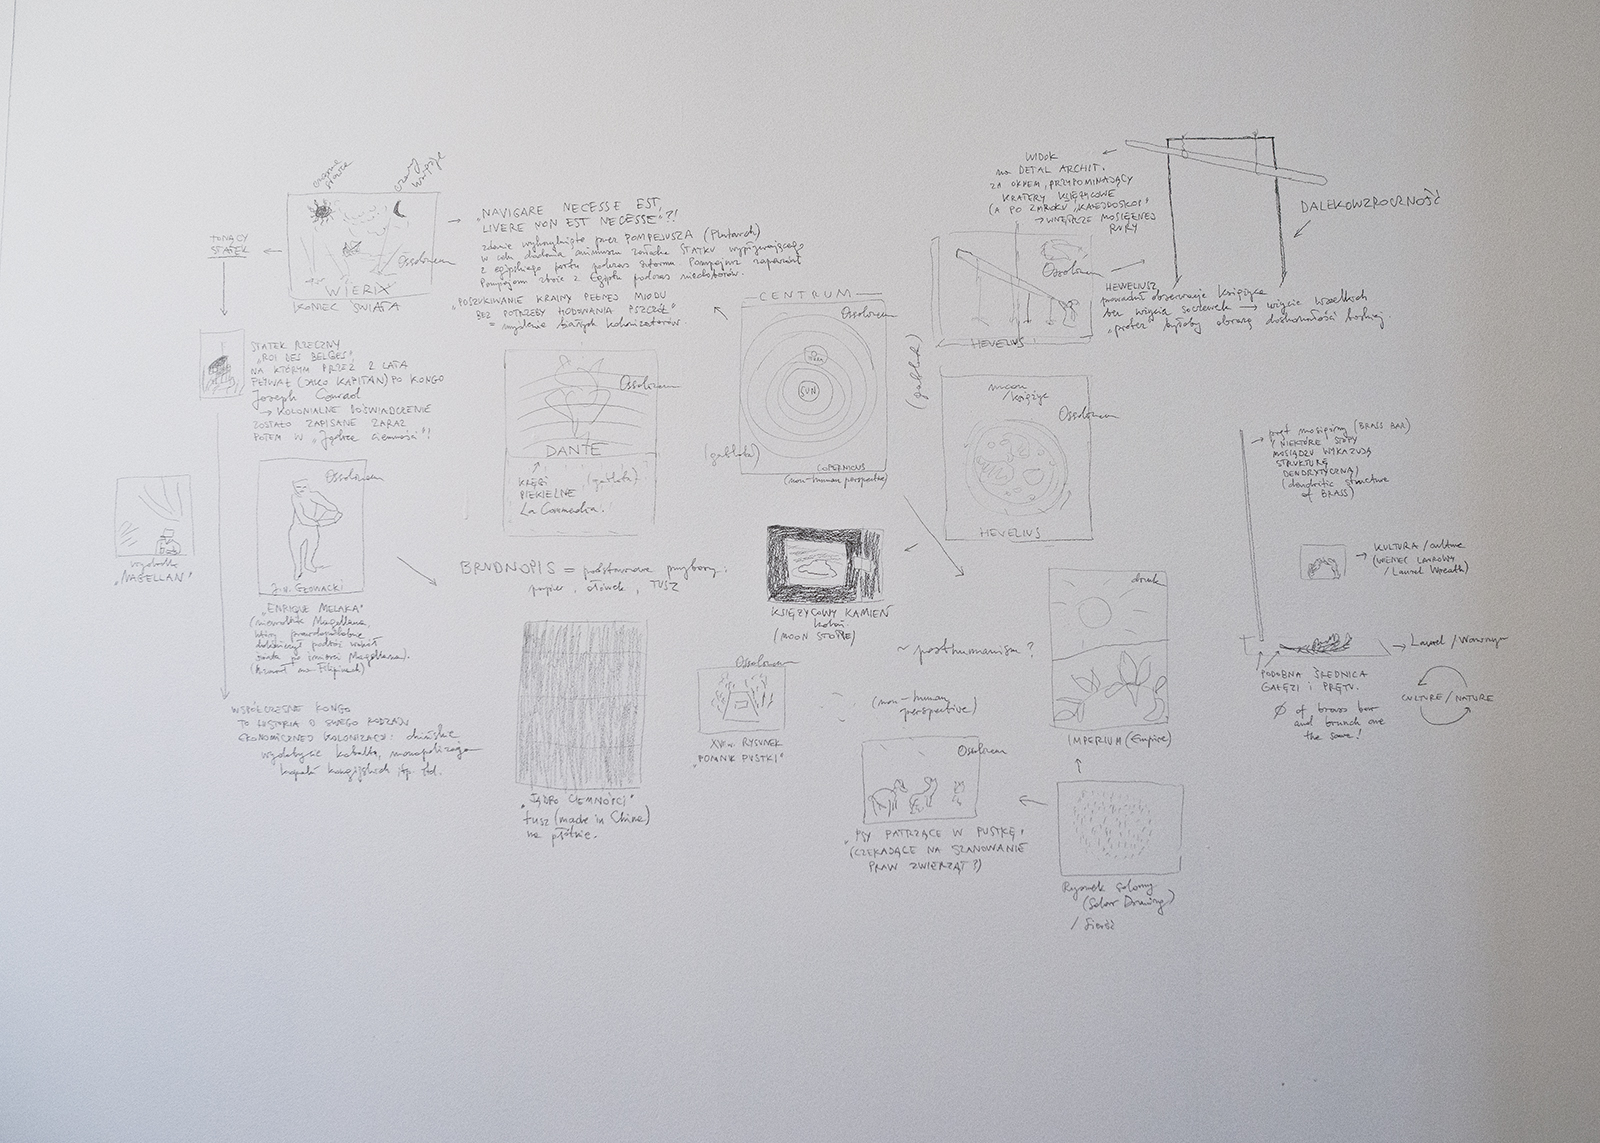 czarne
słońce
czarny
księżyc
TONĄCY
STATEK
Ossolineum
WIERIX
KONIEC ŚWIATA
„NAVIGARE NECESSE EST,
LIVERE NON EST NECESSE"?!
zdanie wykrzyknięte przez POMPEJUSZA (Plutarch)
w celu dodania animuszu załodze STATKU wypływającego
z egipskiego portu podczas sztormu. Pompejusz zapewniał
zboże z Egiptu podczas niedoborów.
„POSZUKIWANIE KRAINY PEŁNEJ MIODU
BEZ POTRZEBY HODOWANIA PSZCZÓŁ"
= myślenie białych kolonizatorów.
STATEK RZECZNY
„ROI DES BELGES",
NA KTÓRYM PRZEZ 2 LATA
PŁYWAŁ (JAKO KAPITAN) PO KONGO
Joseph Conrad
→ KOLONIALNE DOŚWIADCZENIE
ZOSTAŁO ZAPISANE ZARAZ
POTEM W „Jądrze ciemności"!
„MAGELLAN"
Ossolineum
J.N. GŁOWACKI
„ENRIQUE MELAKA"
(niewolnik Magellana,
który prawdopodobnie
dokończył podróż wokół
świata po śmierci Magellana).
WSPÓŁCZESNE KONGO
TO HISTORIA O SWEGO RODZAJU
EKONOMICZNEJ KOLONIZACJI: chińskie
wydobycie kobaltu, monopolizacja
kopalń kongijskich itp. itd.
Ossolineum
DANTE
KRĘGI
PIEKIELNE
La Commedia.
(gablota)
BRUDNOPIS = podstawowe przybory:
papier, ołówek, TUSZ
„JĄDRO CIEMNOŚCI"
tusz (made in China)
na płótnie.
CENTRUM
Ossolineum
SUN
COPERNICUS
(non-human perspective)
(gablota)
(gablota)
KSIĘŻYCOWY KAMIEŃ
(MOON STONE)
Ossolineum
XVIII w. RYSUNEK
„POMNIK PUSTKI"
~ posthumanism?
(non-human
perspective)
WIDOK
na DETAL ARCHIT.
ZA OKNEM, PRZYPOMINAJĄCY
KRATERY KSIĘŻYCOWE
(A PO ZMROKU „KALEJDOSKOP"
→ WNĘTRZE MOSIĘŻNEJ
RURY
Ossolineum
HEVELIUS
DALEKOWZROCZNOŚĆ
HEWELIUSZ
prowadził obserwacje księżyca
bez użycia soczewek → użycie wszelkich
„protez" byłoby obrazą doskonałości boskiej.
moon
/księżyc
Ossolineum
HEVELIUS
druk
IMPERIUM (Empire)
Ossolineum
„PSY PATRZĄCE W PUSTKĘ"
(CZEKAJĄCE NA SZANOWANIE
PRAW ZWIERZĄT?)
Rysunek solarny
(Solar Drawing)
pręt mosiężny (BRASS BAR)
NIEKTÓRE STOPY
MOSIĄDZU WYKAZUJĄ
STRUKTURĘ
DENDRYTYCZNĄ)
(dendritic structure
of BRASS)
KULTURA / culture
(WIENIEC LAUROWY
/ Laurel Wreath)
Laurel / Wawrzyn
PODOBNA ŚREDNICA
GAŁĘZI i PRĘTU.
Ø of brass bar
and brunch are
the same!
CULTURE / NATURE